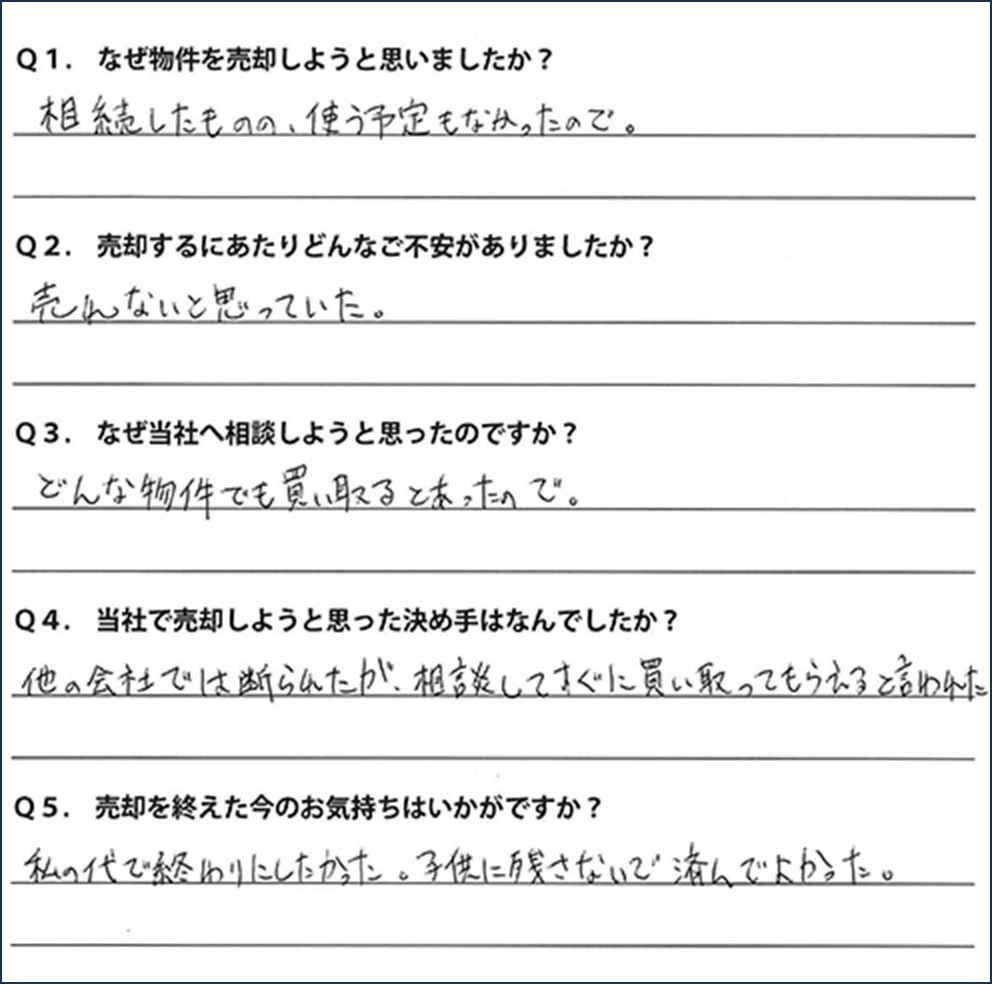 Q1. なぜ物件を売却しようと思いましたか？
相続したものの、使う予定もなかったので。
Q2. 売却するにあたりどんなご不安がありましたか？
売れないと思っていた。
Q3. なぜ当社へ相談しようと思ったのですか？
どんな物件でも買い取るとあったので。
Q4. 当社で売却しようと思った決め手はなんでしたか？
他の会社では断られたが、相談してすぐに買い取ってもらえると言われた
Q5. 売却を終えた今のお気持ちはいかがですか？
私の代で終わりにしたかった。子供に残さないで済んでよかった。